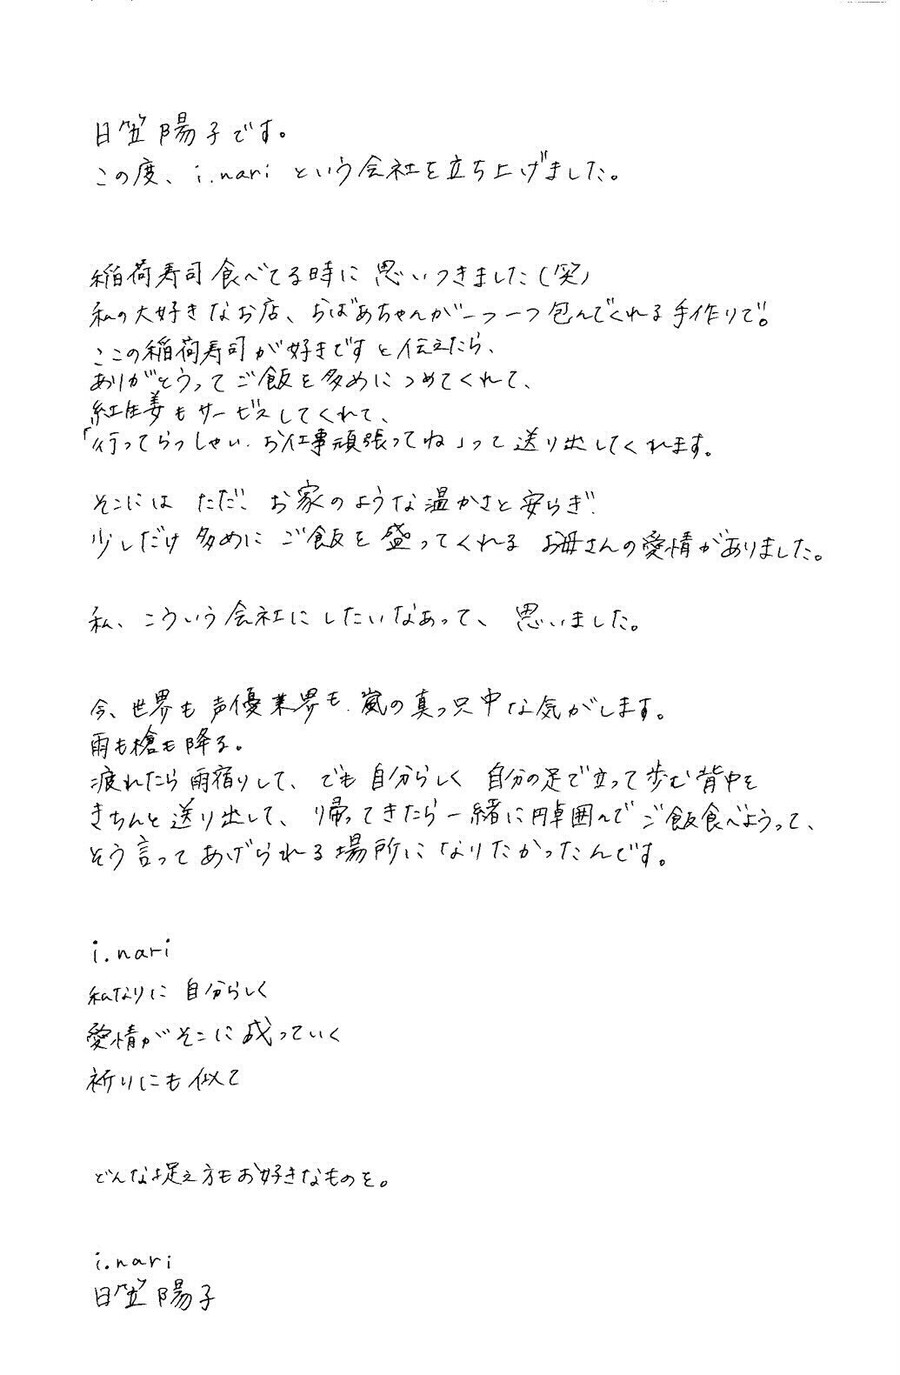 日笠陽子です。
この度、i.nariという会社を立ち上げました。
稲荷寿司食べてる時に思いつきました(笑)
私の大好きなお店、おばあちゃんが一つ一つ包んでくれる手作りで。
ここの稲荷寿司が好きですと伝えたら、
ありがとうってご飯を多めにつめてくれて、
紅生姜もサービスしてくれて、
「行ってらっしゃい、お仕事頑張ってね」って送り出してくれます。
そこにはただ、お家のような温かさと安らぎ、
少しだけ多めにご飯を盛ってくれるお母さんの愛情がありました。
私、こういう会社にしたいなあって、思いました。
今、世界も声優業界も、嵐の真っ只中な気がします。
雨も槍も降る。
疲れたら雨宿りして、でも自分らしく自分の足で立って歩む背中を
きちんと送り出して、帰ってきたら一緒に円卓囲んでご飯食べようって、
そう言ってあげられる場所になりたかったんです。
i.nari
私なりに自分らしく
愛情がそこに成っていく
祈りにも似て
どんな捉え方もお好きなものを。
i.nari
日笠陽子